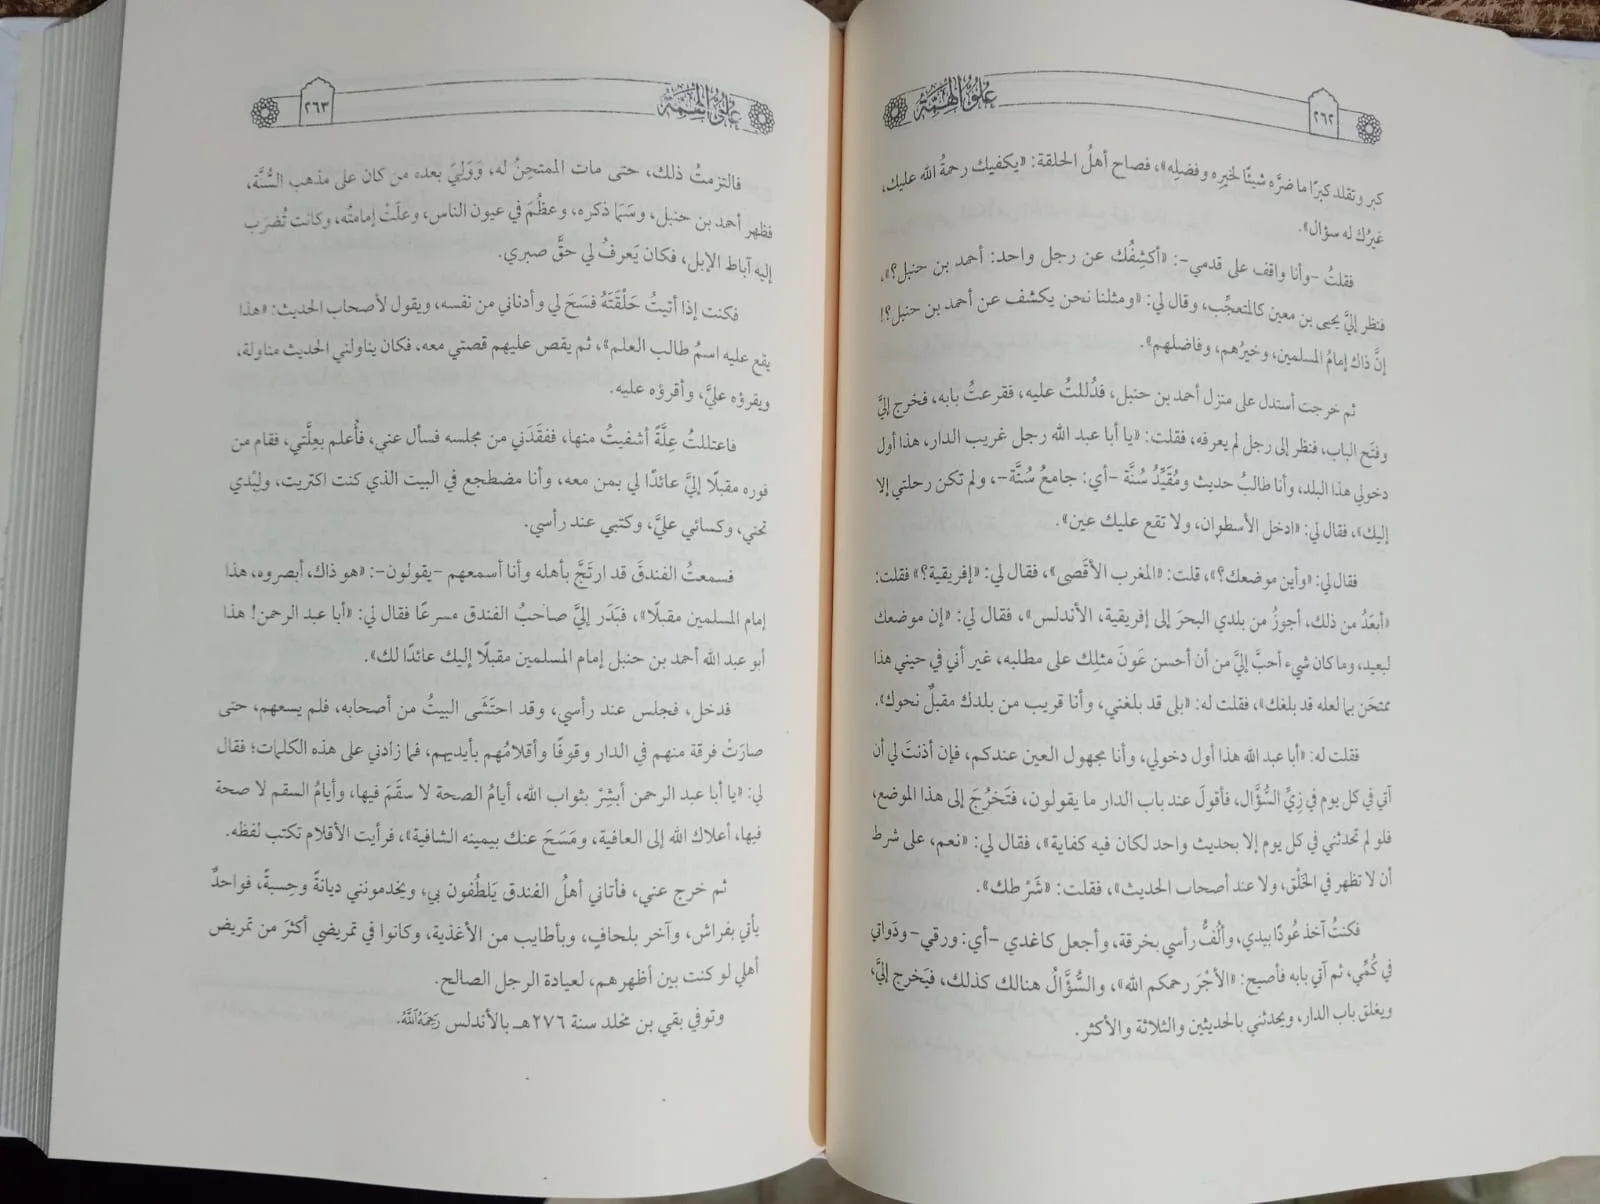 ٢٦٢
علو الهمة
كبر وتقلد كبرًا ما ضرَّه شيئًا لخيرِه وفضلِه»، فصاح أهلُ الحلقة: «يكفيك رحمةُ الله عليك،
غيرُك له سؤال».
فقلتُ -وأنا واقف على قدمي-: «أكشِفُك عن رجل واحد: أحمد بن حنبل؟»،
فنظر إليَّ يحيى بن معين كالمتعجِّب، وقال لي: «ومثلنا نحن يكشف عن أحمد بن حنبل؟!
إنَّ ذاك إمامُ المسلمين، وخيرُهم، وفاضلهم».
ثم خرجت أستدل على منزل أحمد بن حنبل، فدُللتُ عليه، فقرعتُ بابه، فخرج إليَّ
وفتَح الباب، فنظر إلى رجل لم يعرفه، فقلت: «يا أبا عبد الله رجل غريب الدار، هذا أول
دخولي هذا البلد، وأنا طالبُ حديث ومُقَيِّدُ سُنَّة -أي: جامعُ سُنَّة-، ولم تكن رحلتي إلا
إليك»، فقال لي: «ادخل الأسطوان، ولا تقع عليك عين».
فقال لي: «وأين موضعك؟»، قلت: «المغرب الأقصى»، فقال لي: «إفريقية؟» فقلت:
«أبعَدُ من ذلك، أجوزُ من بلدي البحرَ إلى إفريقية، الأندلس»، فقال لي: «إن موضعك
لبعيد، وما كان شيء أحبَّ إليَّ من أن أحسن عَونَ مثلِك على مطلبه، غير أني في حيني هذا
ممتحَن بما لعله قد بلغك»، فقلت له: «بلى قد بلغني، وأنا قريب من بلدك مقبلٌ نحوك».
فقلت له: «أبا عبد الله هذا أول دخولي، وأنا مجهول العين عندكم، فإن أذنتَ لي أن
آتي في كل يوم في زِيِّ السُّؤَّال، فأقولَ عند باب الدار ما يقولون، فتَخرُجَ إلى هذا الموضع،
فلو لم تحدثني في كل يوم إلا بحديث واحد لكان فيه كفاية»، فقال لي: «نعم، على شرط
أن لا تظهر في الخَلْق، ولا عند أصحاب الحديث»، فقلت: «شَرْطك».
فكنتُ آخذ عُودًا بيدي، وألُفُّ رأسي بخرقة، وأجعل كاغدي -أي: ورقي- ودَواتي
في كُمِّي، ثم آتي بابه فأصيح: «الأجْرَ رحمكم الله»، والسُّؤَّالُ هنالك كذلك، فيَخرج إليَّ،
ويغلق باب الدار، ويحدثني بالحديثين والثلاثة والأكثر.
علو الهمة
٢٦٣
فالتزمتُ ذلك، حتى مات الممتحِنُ له، وَوَلِيَ بعده من كان على مذهب السُّنَّة،
فظهر أحمد بن حنبل، وسَمَا ذكره، وعظُمَ في عيون الناس، وعلَتْ إمامتُه، وكانت تُضرَب
إليه آباط الإبل، فكان يَعرفُ لي حقَّ صبري.
فكنت إذا أتيتُ حَلْقَتَهُ فسَحَ لي وأدناني من نفسه، ويقول لأصحاب الحديث: «هذا
يقع عليه اسمُ طالب العلم»، ثم يقص عليهم قصتي معه، فكان يناولني الحديث مناولة،
ويقرؤه عليَّ، وأقرؤه عليه.
فاعتللتُ عِلَّةً أشفيتُ منها، ففقَدَني من مجلسه فسأل عني، فأُعلم بعِلَّتي، فقام من
فوره مقبلًا إليَّ عائدًا لي بمن معه، وأنا مضطجع في البيت الذي كنت اكتريت، ولِبْدي
تحتي، وكسائي عليَّ، وكتبي عند رأسي.
فسمعتُ الفندقَ قد ارتَجَّ بأهله وأنا أسمعهم -يقولون-: «هو ذاك، أبصروه، هذا
إمام المسلمين مقبلًا»، فبَدَر إليَّ صاحبُ الفندق مسرعًا فقال لي: «أبا عبد الرحمن! هذا
أبو عبد الله أحمد بن حنبل إمام المسلمين مقبلًا إليك عائدًا لك».
فدخل، فجلس عند رأسي، وقد احتَشَى البيتُ من أصحابه، فلم يسعهم، حتى
صارَتْ فرقة منهم في الدار وقوفًا وأقلامُهم بأيديهم، فما زادني على هذه الكلمات؛ فقال
لي: «يا أبا عبد الرحمن أبشِرْ بثواب الله، أيامُ الصحة لا سقَمَ فيها، وأيامُ السقم لا صحة
فيها، أعلاك الله إلى العافية، ومَسَحَ عنك بيمينه الشافية»، فرأيت الأقلام تكتب لفظه.
ثم خرج عني، فأتاني أهلُ الفندق يَلطُفون بي، ويخدمونني ديانةً وحِسبةً، فواحدٌ
يأتي بفراش، وآخر بلحافٍ، وبأطايب من الأغذية، وكانوا في تمريضي أكثرَ من تمريض
أهلي لو كنت بين أظهرهم، لعيادة الرجل الصالح.
وتوفي بقي بن مخلد سنة ٢٧٦هـ بالأندلس رَحِمَهُ اللَّهُ.